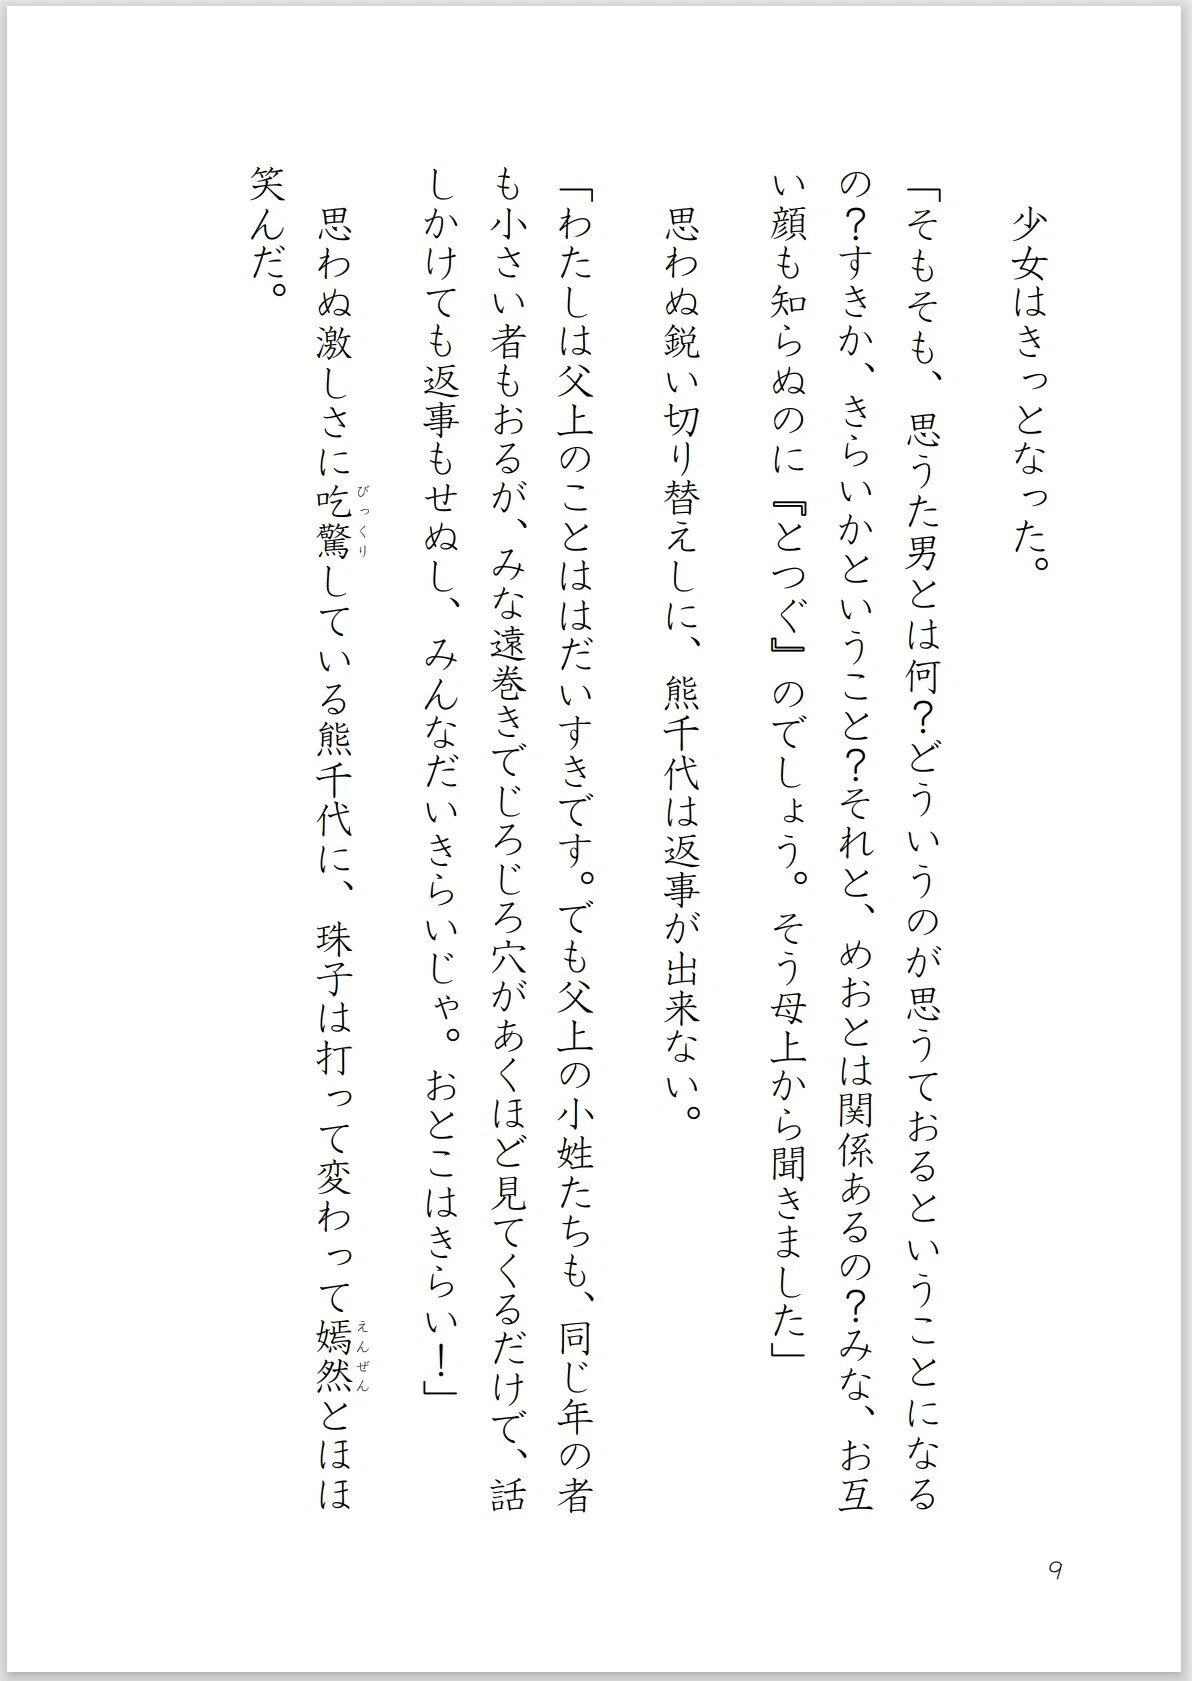 少女はきっとなった。
「そもそも、思うた男とは何？どういうのが思うておるということになる
の？すきか、きらいかということ？それと、めおとは関係あるの？みな、お互
い顔も知らぬのに『とつぐ』のでしょう。そう母上から聞きました」
　思わぬ鋭い切り替えしに、熊千代は返事が出来ない。
「わたしは父上のことははだいすきです。でも父上の小姓たちも、同じ年の者
も小さい者もおるが、みな遠巻きでじろじろ穴があくほど見てくるだけで、話
しかけても返事もせぬし、みんなだいきらいじゃ。おとこはきらい！」
　思わぬ激しさに吃驚している熊千代に、珠子は打って変わって嫣然とほほ
びっくり
えんぜん
笑んだ。
9